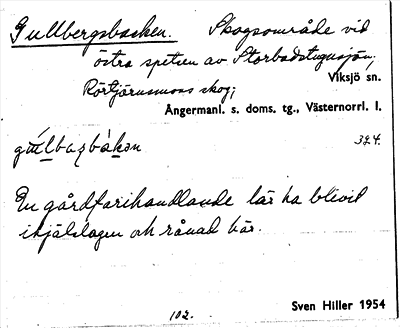 Gullbergsbacken. Skogsområde vid
östra spetsen av Storbodstugusjön,
Viksjö sn.
Rörtjärnsmons skog;
Ångermanl. s. doms. tg., Västernorrl. l.
324.
En gårdfarihandlande lär ha blivit
ihjälslagen och rånad här.
102.
Sven Hiller 1954